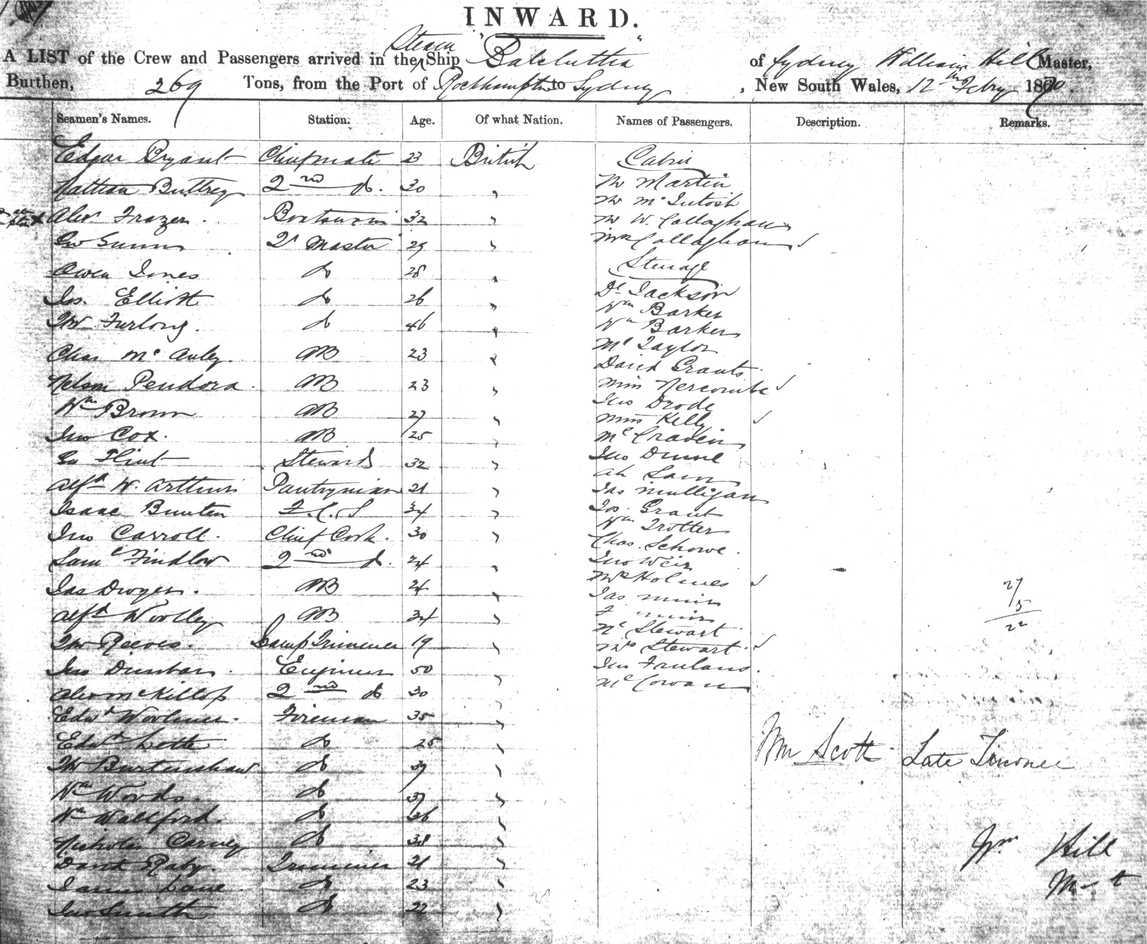 INWARD.
A LIST of the Crew and Passengers arrived in the Steam Ship "Balclutha" of Sydney William Hill Master,
Burthen, 269 Tons, from the Port of Rockhampton to Sydney, New South Wales, 12th Febry 1870.
Seamen's Names. Station. Age. Of what Nation. Names of Passengers. Description. Remarks.
Edgar Bryant Chief mate 23 British Cabin
Nathan Buttrey 2nd do. 30 " Mr Martin
Mr McIntosh
Alexr Frazer. Boatswain 32 " Mr W. Callaghan
Geo Gunn Qr Master 29 " Mrs Callaghan
Owen Jones do 25 " Steerage
Jos. Elliott do 26 " Dl Jackson
Wm Barker
Furlong. do 46 " Wm Barker
Chas McAuley. AB 23 " Mc Taylor
David Grants.
Nelson Pendora. AB 23 " Miss
Wm Brown AB 27 " Jno
Miss Kelly
Jno Cox. AB 25 "
Geo Flint Steward 32 " Jno Dunne
Ah Sam
Alfd W. Arthur Pantryman 21 " Jas Mulligan
Isaac F.C.S 34 " Jos. Grant
Wm Trotter
Jno Carroll. Chief Cook. 30 " Chas.
Saml Findlow 2nd do. 24 " Jno Weir
Holmes
Jas Dwyer. AB 24 " Jas. Muir
Muir
Alfd Woolley AB 34 " Stewart
27
5
22
Reeves. Lamp Trimmer 19 " Mrs Stewart
Jno Dunbar. Engineer 50 " Jno
Alexr McKillop 2nd do 30 " McCowan
Edwd Fireman 35 "
Edwd do 25 " Wm Scott Late
Burtenshaw do 39 "
Wm Woods do 37 "
Wm Wallford. do 36 "
Nicholas Carney do 38 " Wm Hill
David Trimmer 21 "
James Lane do 23 "
Jno Smith do 22 "